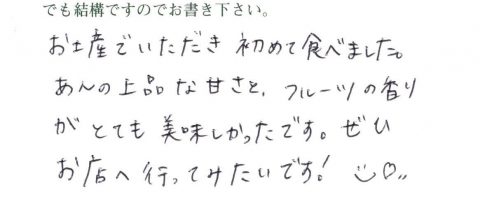 でも結構ですのでお書き下さい。
お土産でいただき 初めて食べました。
あんの上品な甘さと、フルーツの香り
がとても美味しかったです。ぜひ
お店へ行ってみたいです!